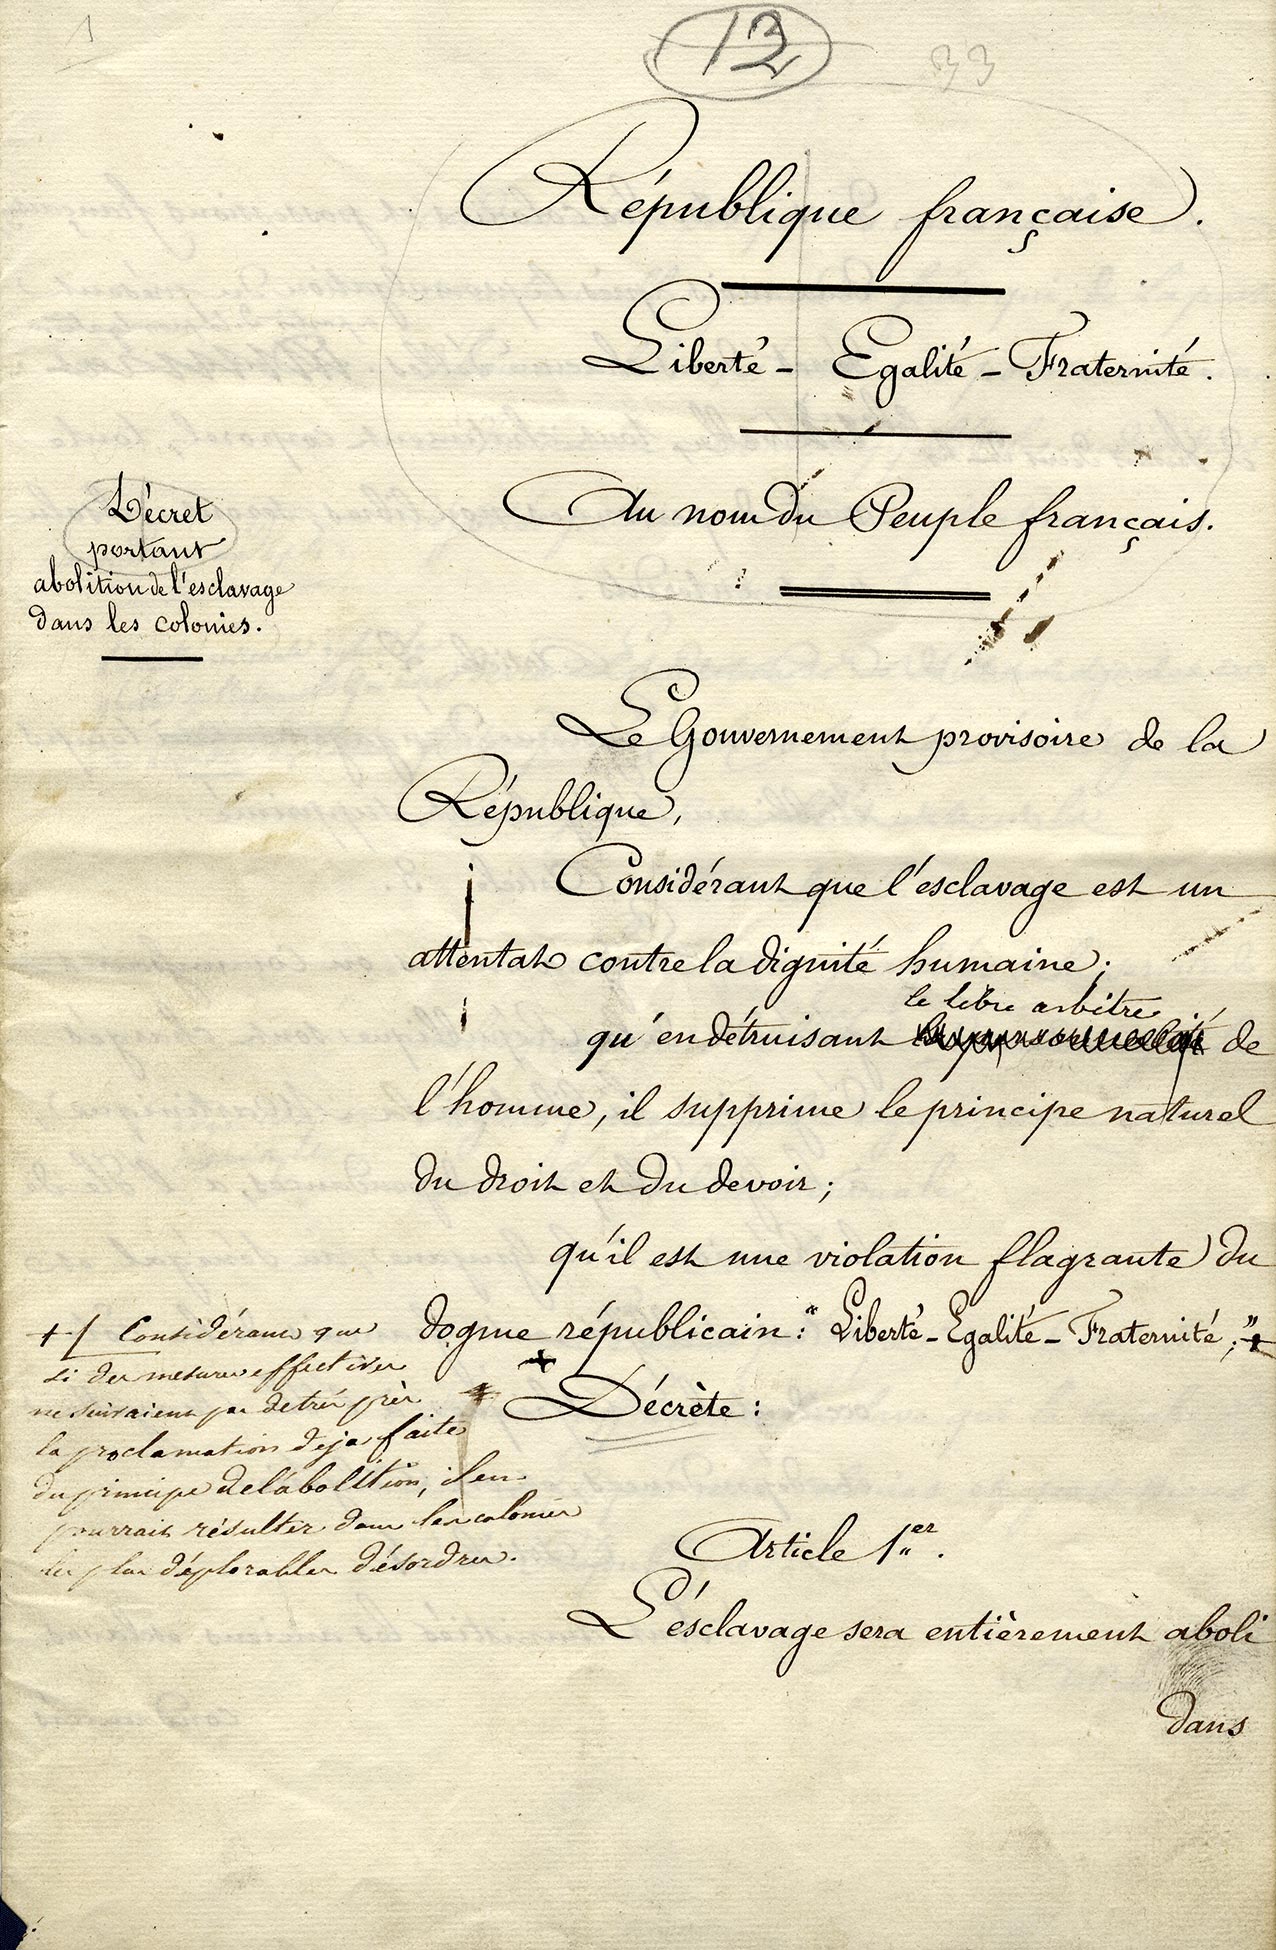 1
12
33
République française.
Liberté - Egalité - Fraternité.
Au nom du Peuple français.
Décret
portant
abolition de l'esclavage
dans les colonies.
Le Gouvernement provisoire de la
République,
Considérant que l'esclavage est un
attentat contre la dignité humaine;
le libre arbitre
qu'en détruisant la personnalité de
l'homme, il supprime le principe naturel
du droit et du devoir;
qu'il est une violation flagrante du
dogme républicain: "Liberté - Egalité - Fraternité;" +
+/ Considérant que
si des mesures effectives
ne suivaient pas de très près
la proclamation déja faite
du principe de l'abolition, il en
pourrait résulter dans les colonies
les plus déplorables désordres.
Décrète:
Article 1er.
L'ésclavage sera entièrement aboli
dans